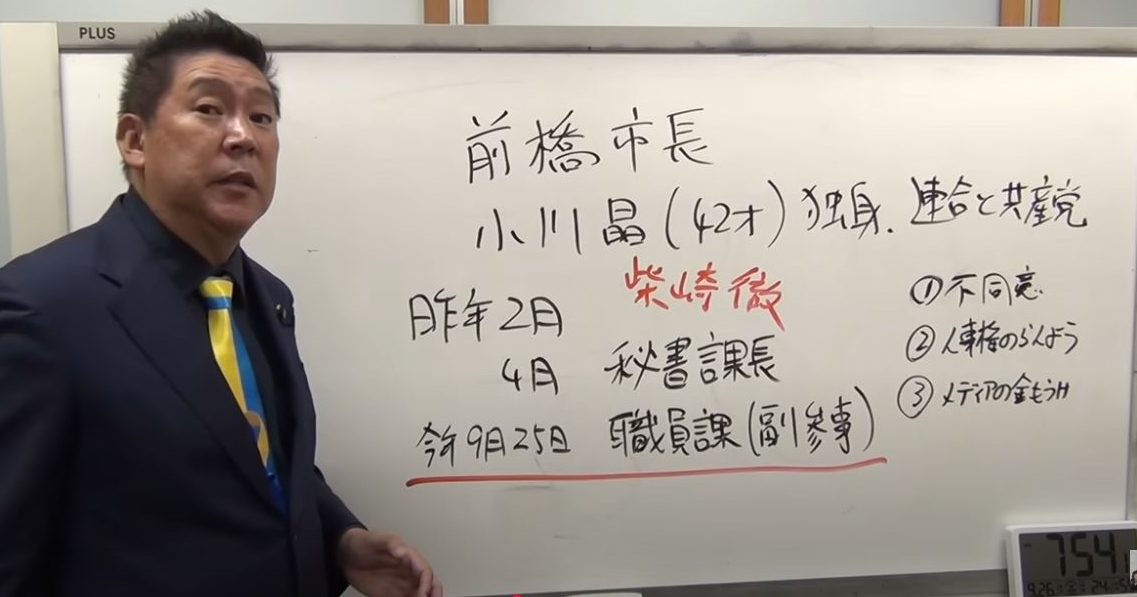 PLUS
前橋市長
小川晶(42才)独身. 連合と共産党
柴崎徹
昨年2月
4月 秘書課長
今年9月25日 職員課(副参事)
①不同意
②人事権のらんよう
③メディアの金もうけ
7:54
9.26 金 24